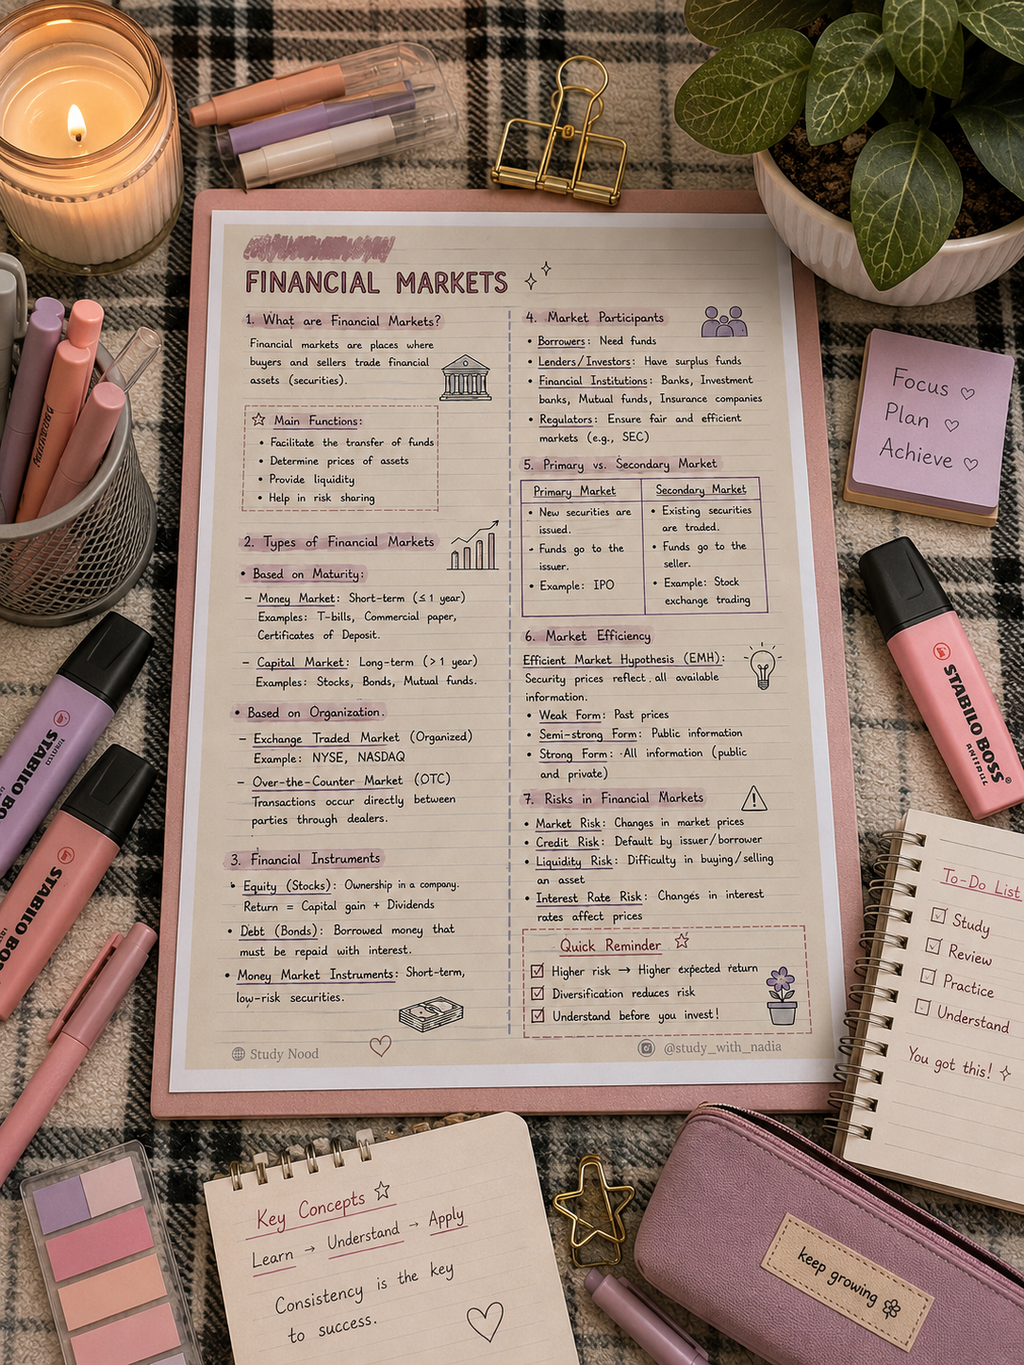 FINANCIAL MARKETS
1. What are Financial Markets?
Financial markets are places where
buyers and sellers trade financial
assets (securities).
Main Functions:
• Facilitate the transfer of funds
• Determine prices of assets
• Provide liquidity
• Help in risk sharing
2. Types of Financial Markets
• Based on Maturity:
– Money Market: Short-term (≤ 1 year)
Examples: T-bills, Commercial paper,
Certificates of Deposit.
– Capital Market: Long-term (> 1 year)
Examples: Stocks, Bonds, Mutual funds.
• Based on Organization.
– Exchange Traded Market (Organized)
Example: NYSE, NASDAQ
– Over-the-Counter Market (OTC)
Transactions occur directly between
parties through dealers.
3. Financial Instruments
• Equity (Stocks): Ownership in a company.
Return = Capital gain + Dividends
• Debt (Bonds): Borrowed money that
must be repaid with interest.
• Money Market Instruments: Short-term,
low-risk securities.
Study Nood
4. Market Participants
• Borrowers: Need funds
• Lenders/Investors: Have surplus funds
• Financial Institutions: Banks, Investment
banks, Mutual funds, Insurance companies
• Regulators: Ensure fair and efficient
markets (e.g., SEC)
5. Primary vs. Secondary Market
Primary Market
• New securities are
issued.
- Funds go to the
issuer.
• Example: IPO
Secondary Market
• Existing securities
are traded.
• Funds go to the
seller.
• Example: Stock
exchange trading
6. Market Efficiency
Efficient Market Hypothesis (EMH):
Security prices reflect all available
information.
• Weak Form: Past prices
• Semi-strong Form: Public information
• Strong Form: All information (public
and private)
7. Risks in Financial Markets
• Market Risk: Changes in market prices
• Credit Risk: Default by issuer/borrower
• Liquidity Risk: Difficulty in buying/selling
an asset
• Interest Rate Risk: Changes in interest
rates affect prices
Quick Reminder
☑ Higher risk → Higher expected return
☑ Diversification reduces risk
☑ Understand before you invest!
@study_with_nadia
Focus ♡
Plan ♡
Achieve ♡
STABILO BOSS
STABILO BO
STABILO BOSS
To-Do List
☑ Study
☑ Review
☑ Practice
☑ Understand
You got this!
Key Concepts
Learn → Understand → Apply
Consistency is the key
to success.
keep growing